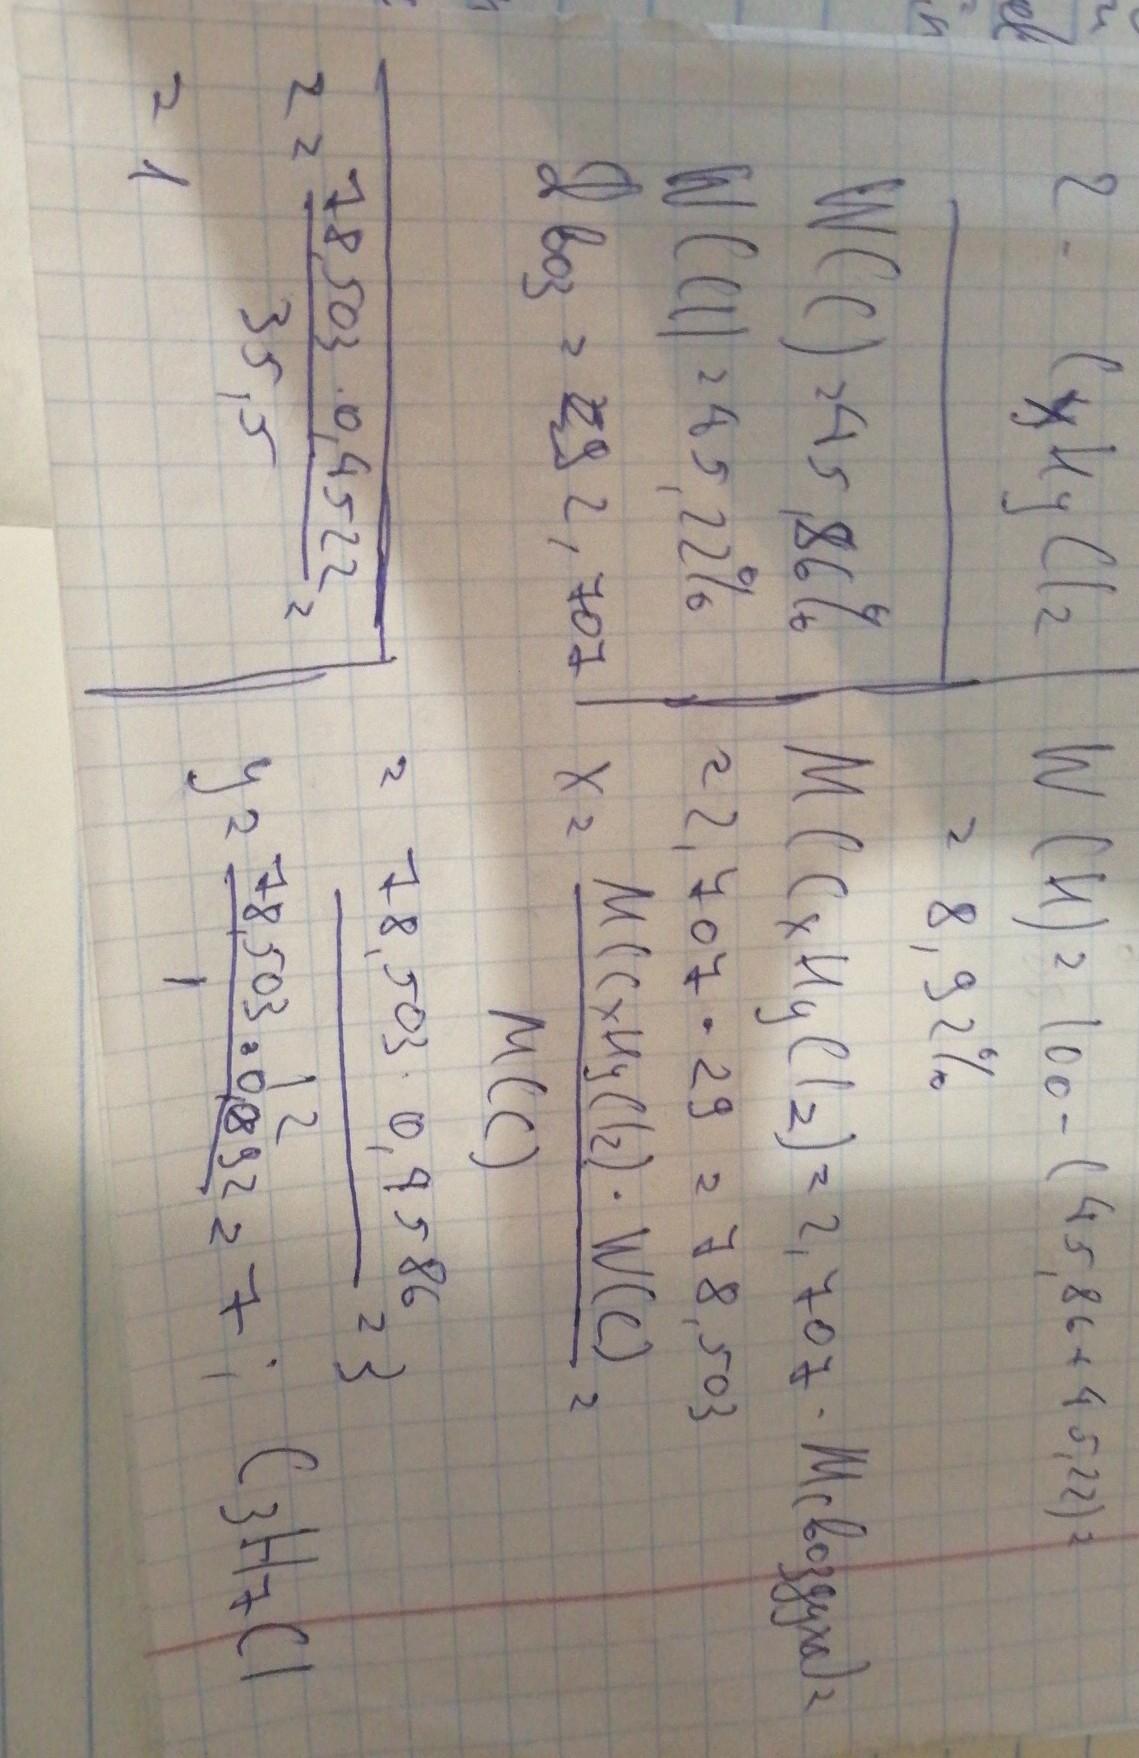 2. CxHyClz
W(C)=45,86%
W(Cl)=45,22%
Dвоз = 2,707
W(H)=100-(45,86+45,22)=
= 8,92%
M(CxHyClz)=2,707·M(воздуха)=
=2,707·29=78,503
x= M(CxHyClz)·W(C) =
M(C)
= 78,503·0,4586 =3
12
y= 78,503·0,892=7;
1
C3H7Cl
z= 78,503·0,4522 =
35,5
=1